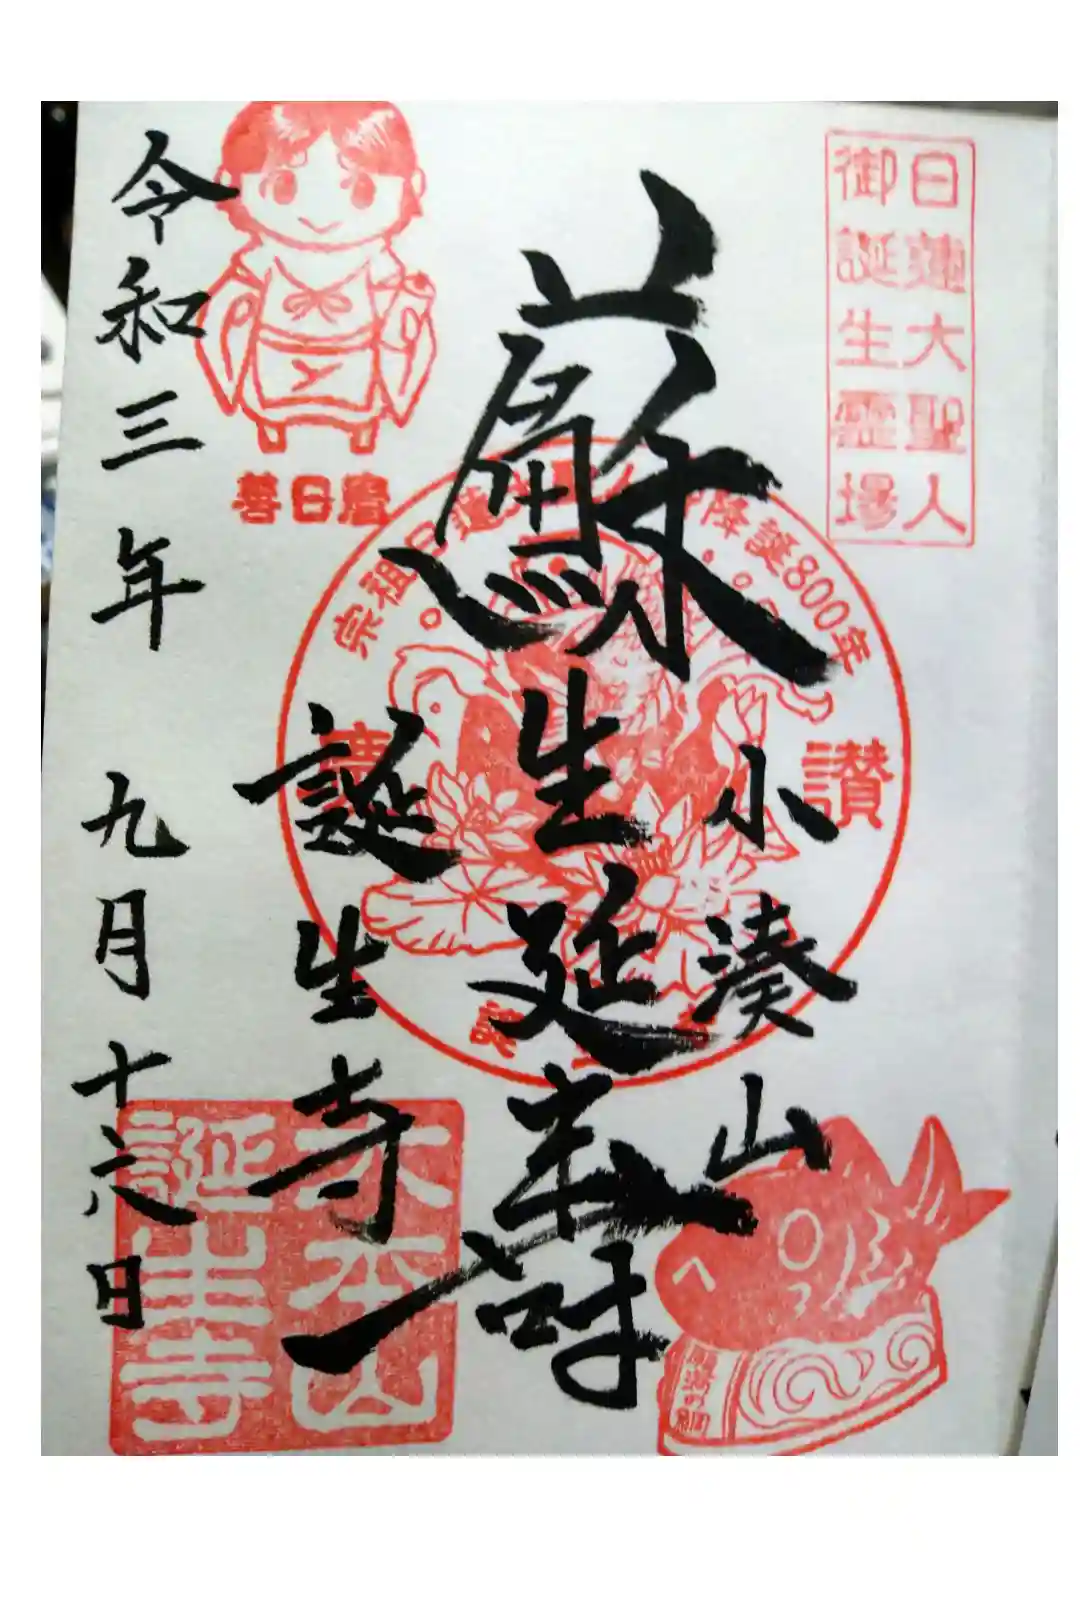 日蓮大聖人
御誕生霊場
生延寿
小湊山
誕生寺
令和三年 九月 十六日
善日麿
降誕800年
讃
大本山
誕生寺